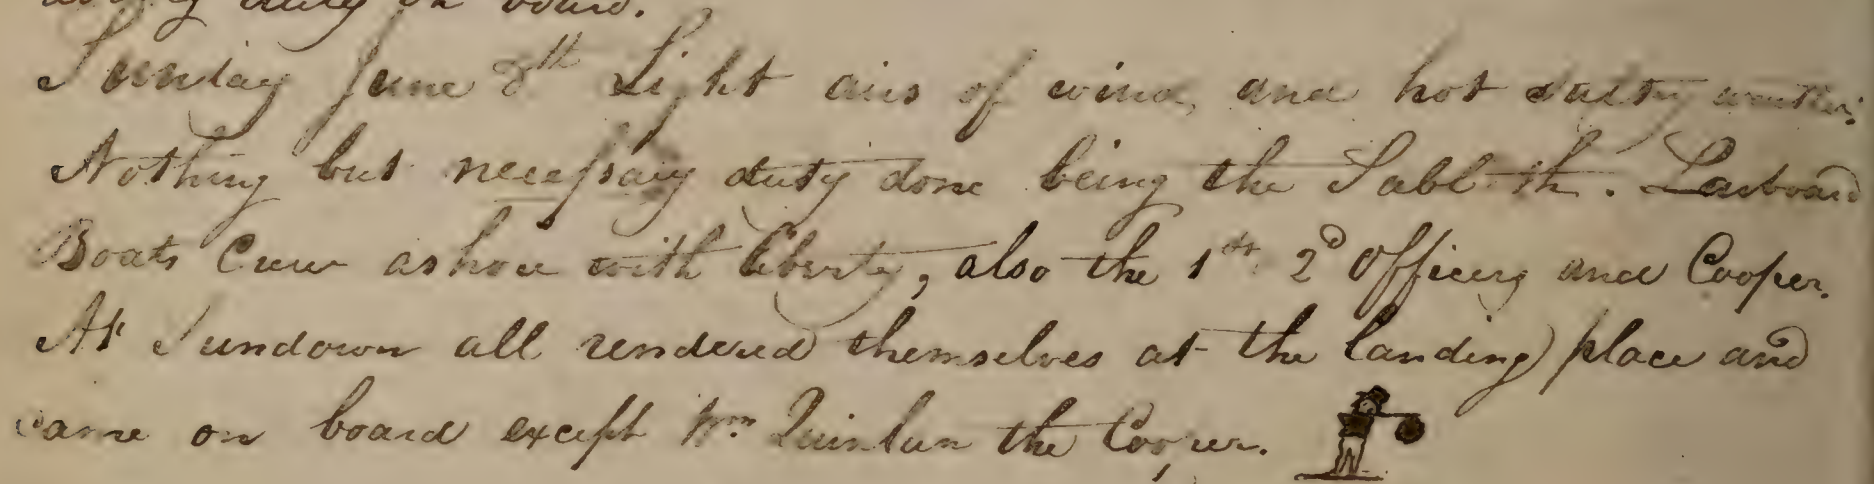 duty on board.
Sunday June 8th Light airs of wind, and hot sultry weather.
Nothing but necessary duty done being the Sabbath. Larboard
Boats Crew ashore with liberty, also the 1st 2d Officers and Cooper.
At Sundown all rendered themselves at the landing place and
came on board except Wm Quinlan the Cooper.